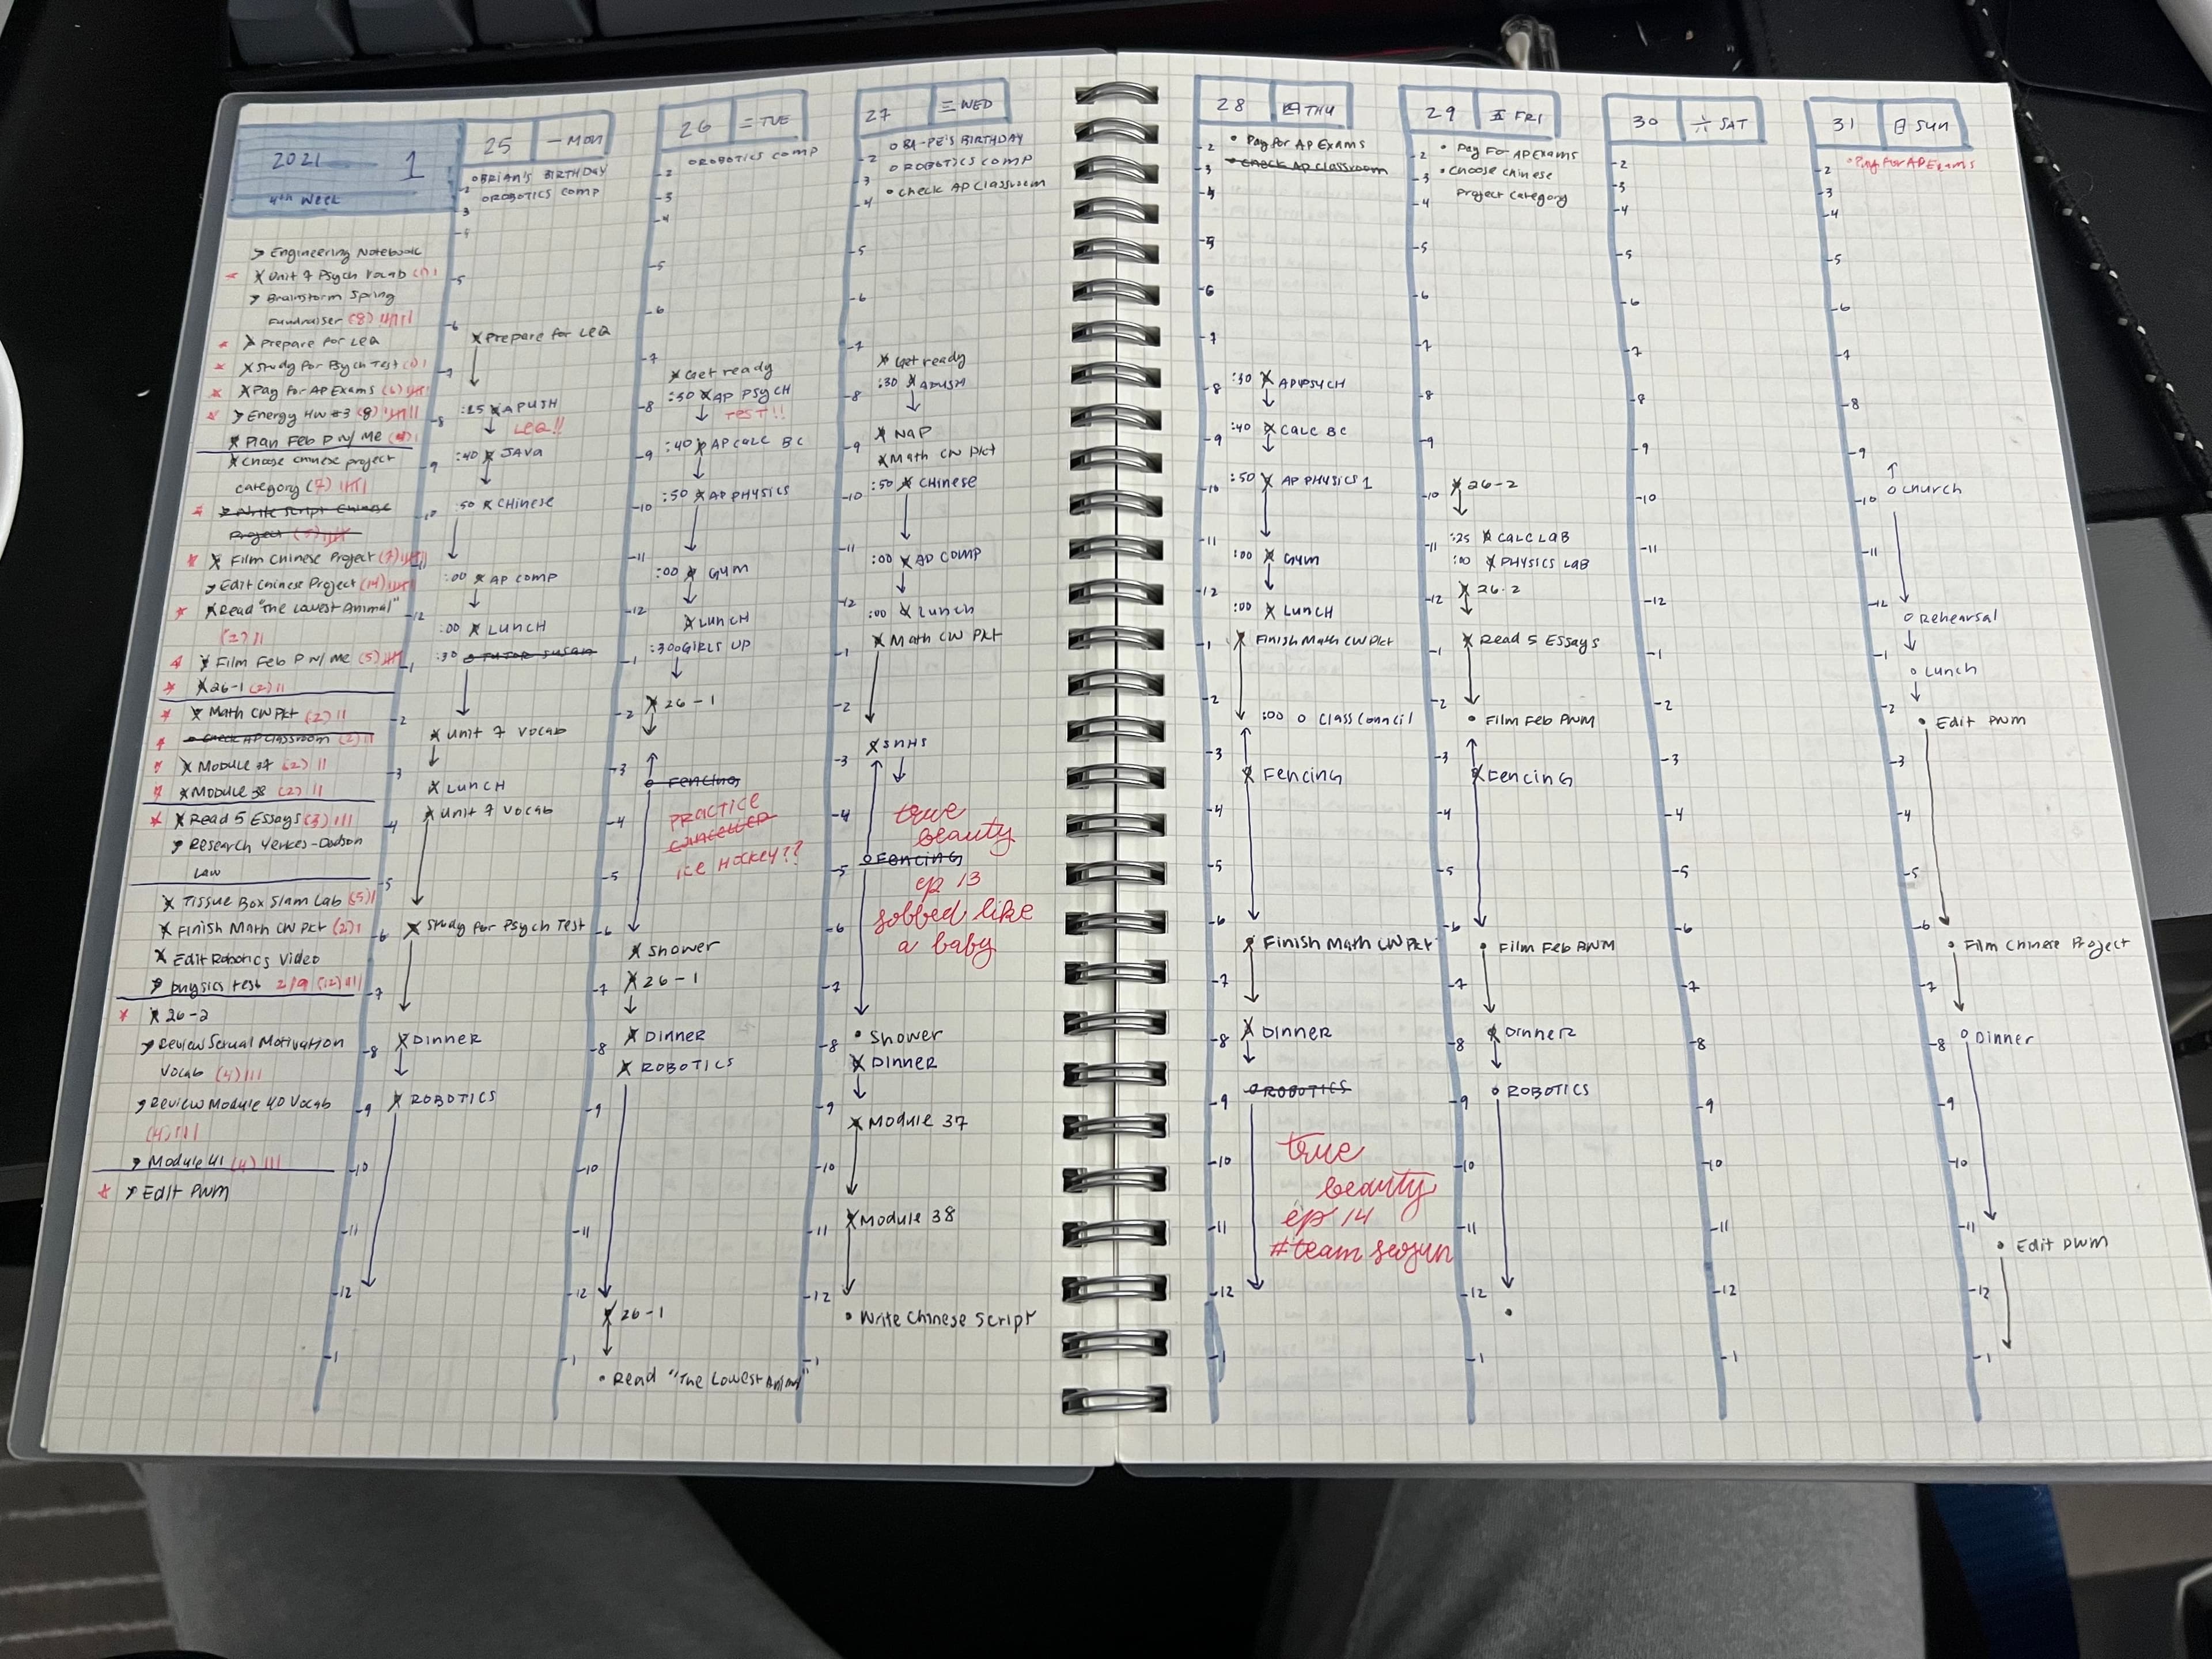 2021 1
4th Week
> Engineering Notebook
x Unit 7 Psych Vocab (1) |
> Brainstorm Spring
Fundraiser (8)
> Prepare for LEQ
x Study for Psych Test (1) |
x Pay for AP Exams (6)
> Energy HW #3 (8)
x Plan Feb P W/ Me
x Choose Chinese project
category (7)
Write Script Chinese
Project
x Film Chinese Project (7)
> Edit Chinese Project (14)
x Read "The Lowest Animal"
(2) ||
Film Feb P W/ Me (5)
x 26-1 (2) ||
x Math CW Pkt (2) ||
Check AP Classroom (2) ||
x Module 37 (2) ||
x Module 38 (2) ||
x Read 5 Essays (3) |||
> Research Yerkes-Dodson
Law
x Tissue Box Slam Lab
x Finish Math CW Pkt (2) |
x Edit Robotics Video
> physics test 2/9 (12)
x 26-2
> Review Sexual Motivation
Vocab (4) |||
> Review Module 40 Vocab
(4) |||
> Module 41 (4) |||
> Edit PWM
25 一 MON
o BRIAN'S BIRTHDAY
o ROBOTICS COMP
x Prepare for LEQ
:25 x APUSH
LEQ!!
:40 x JAVA
:50 x CHINESE
:00 x AP COMP
:00 x LUNCH
:30 o TUTOR SUSAN
x Unit 7 Vocab
x LUNCH
x Unit 7 Vocab
x Study for Psych Test
x DINNER
x ROBOTICS
26 二 TUE
o ROBOTICS COMP
x Get ready
:30 x AP PSYCH
TEST!!
:40 x AP CALC BC
:50 x AP PHYSICS
:00 x GYM
x LUNCH
:30 o GIRLS UP
x 26-1
o FENCING
PRACTICE
CANCELLED
ICE HOCKEY??
x Shower
x 26-1
x DINNER
x ROBOTICS
x 26-1
• Read "The Lowest Animal"
27 三 WED
o BA-PE'S BIRTHDAY
o ROBOTICS COMP
• Check AP Classroom
x Get ready
:30 x APUSH
x NAP
x Math CW Pkt
:50 x CHINESE
:00 x AP COMP
:00 x LUNCH
x Math CW Pkt
x SNHS
true
beauty
o FENCING
ep 13
sobbed like
a baby
• Shower
x DINNER
x Module 37
x Module 38
• Write Chinese Script
28 四 THU
• Pay for AP Exams
• Check AP Classroom
:30 x AP PSYCH
:40 x CALC BC
:50 x AP PHYSICS 1
:00 x GYM
:00 x LUNCH
x Finish Math CW Pkt
:00 o Class Council
x FENCING
x Finish Math CW Pkt
x DINNER
o ROBOTICS
true
beauty
ep 14
#team seojun
29 五 FRI
• Pay For AP Exams
• Choose Chinese
Project Category
x 26-2
:25 x CALC LAB
:00 x PHYSICS LAB
x 26-2
x Read 5 Essays
• Film Feb PWM
x FENCING
• Film Feb PWM
x DINNER
o ROBOTICS
30 六 SAT
31 日 SUN
• Pay for AP Exams
o Church
o Rehearsal
o Lunch
• Edit PWM
• Film Chinese Project
o Dinner
• Edit PWM